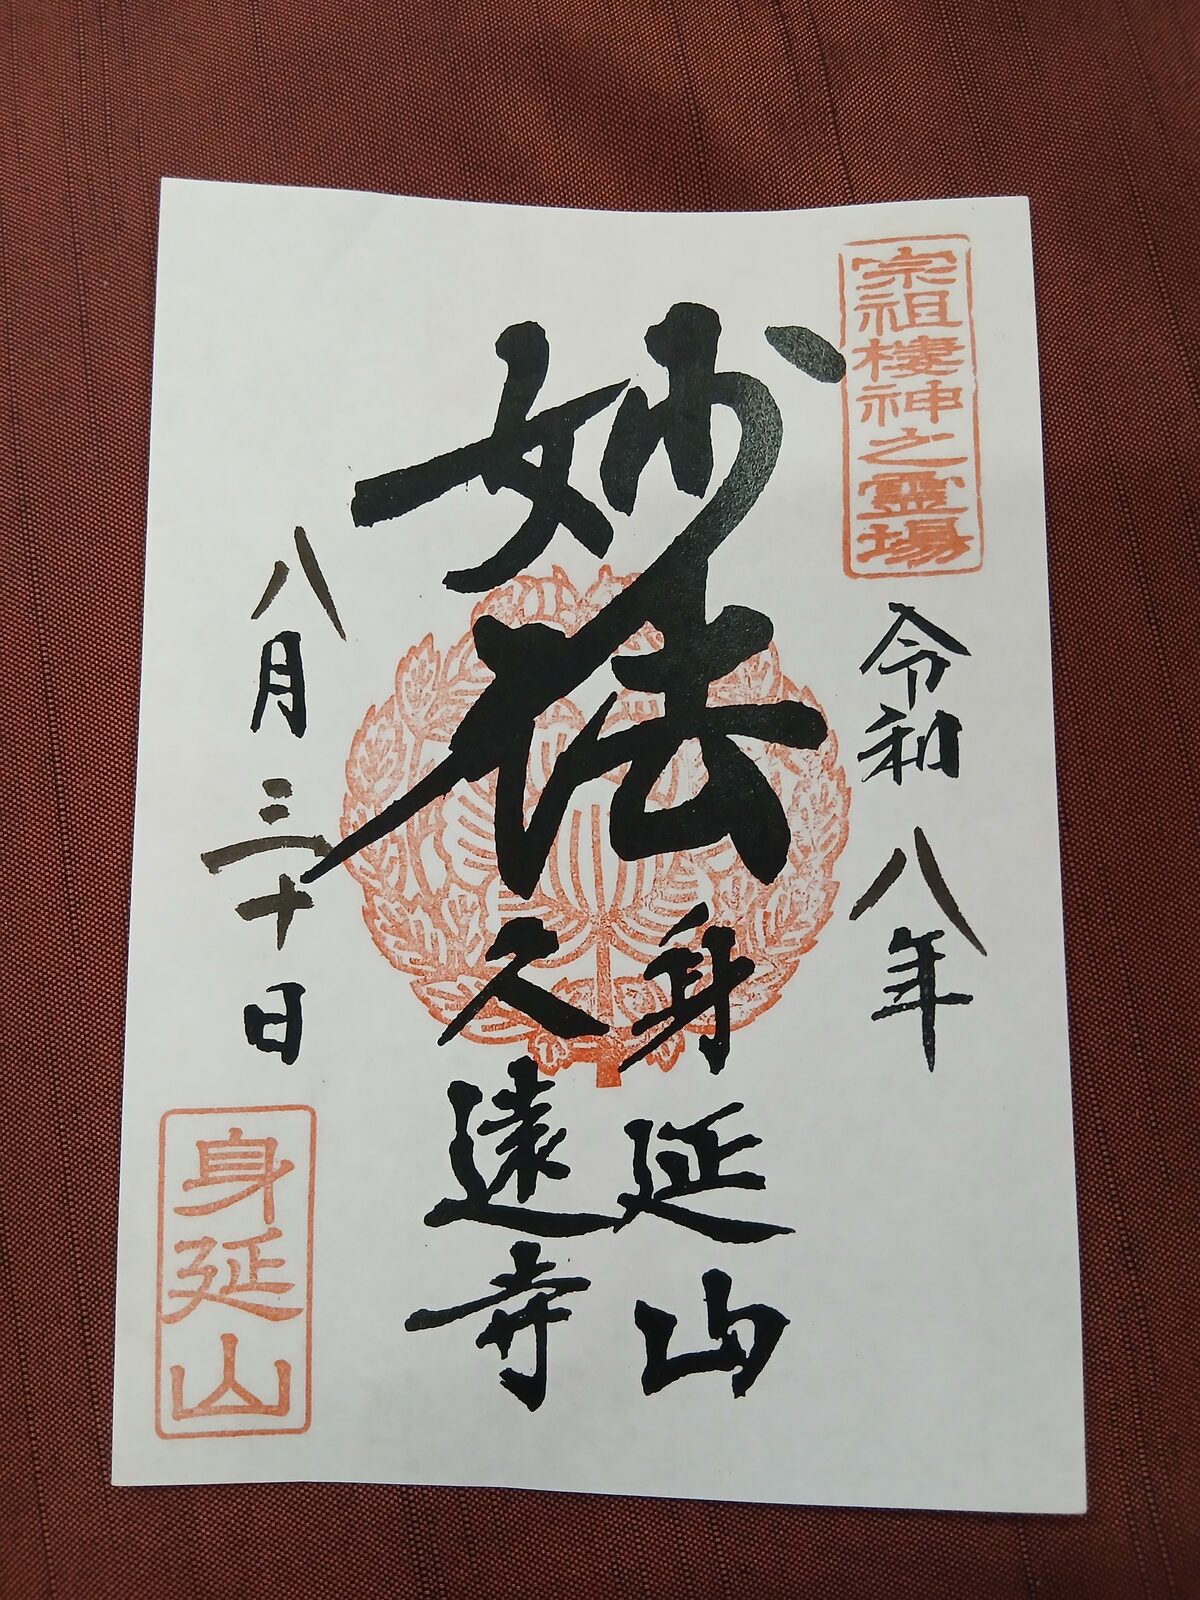 宗祖棲神之霊場
令和八年
妙法
身延山
久遠寺
八月三十日
身延山